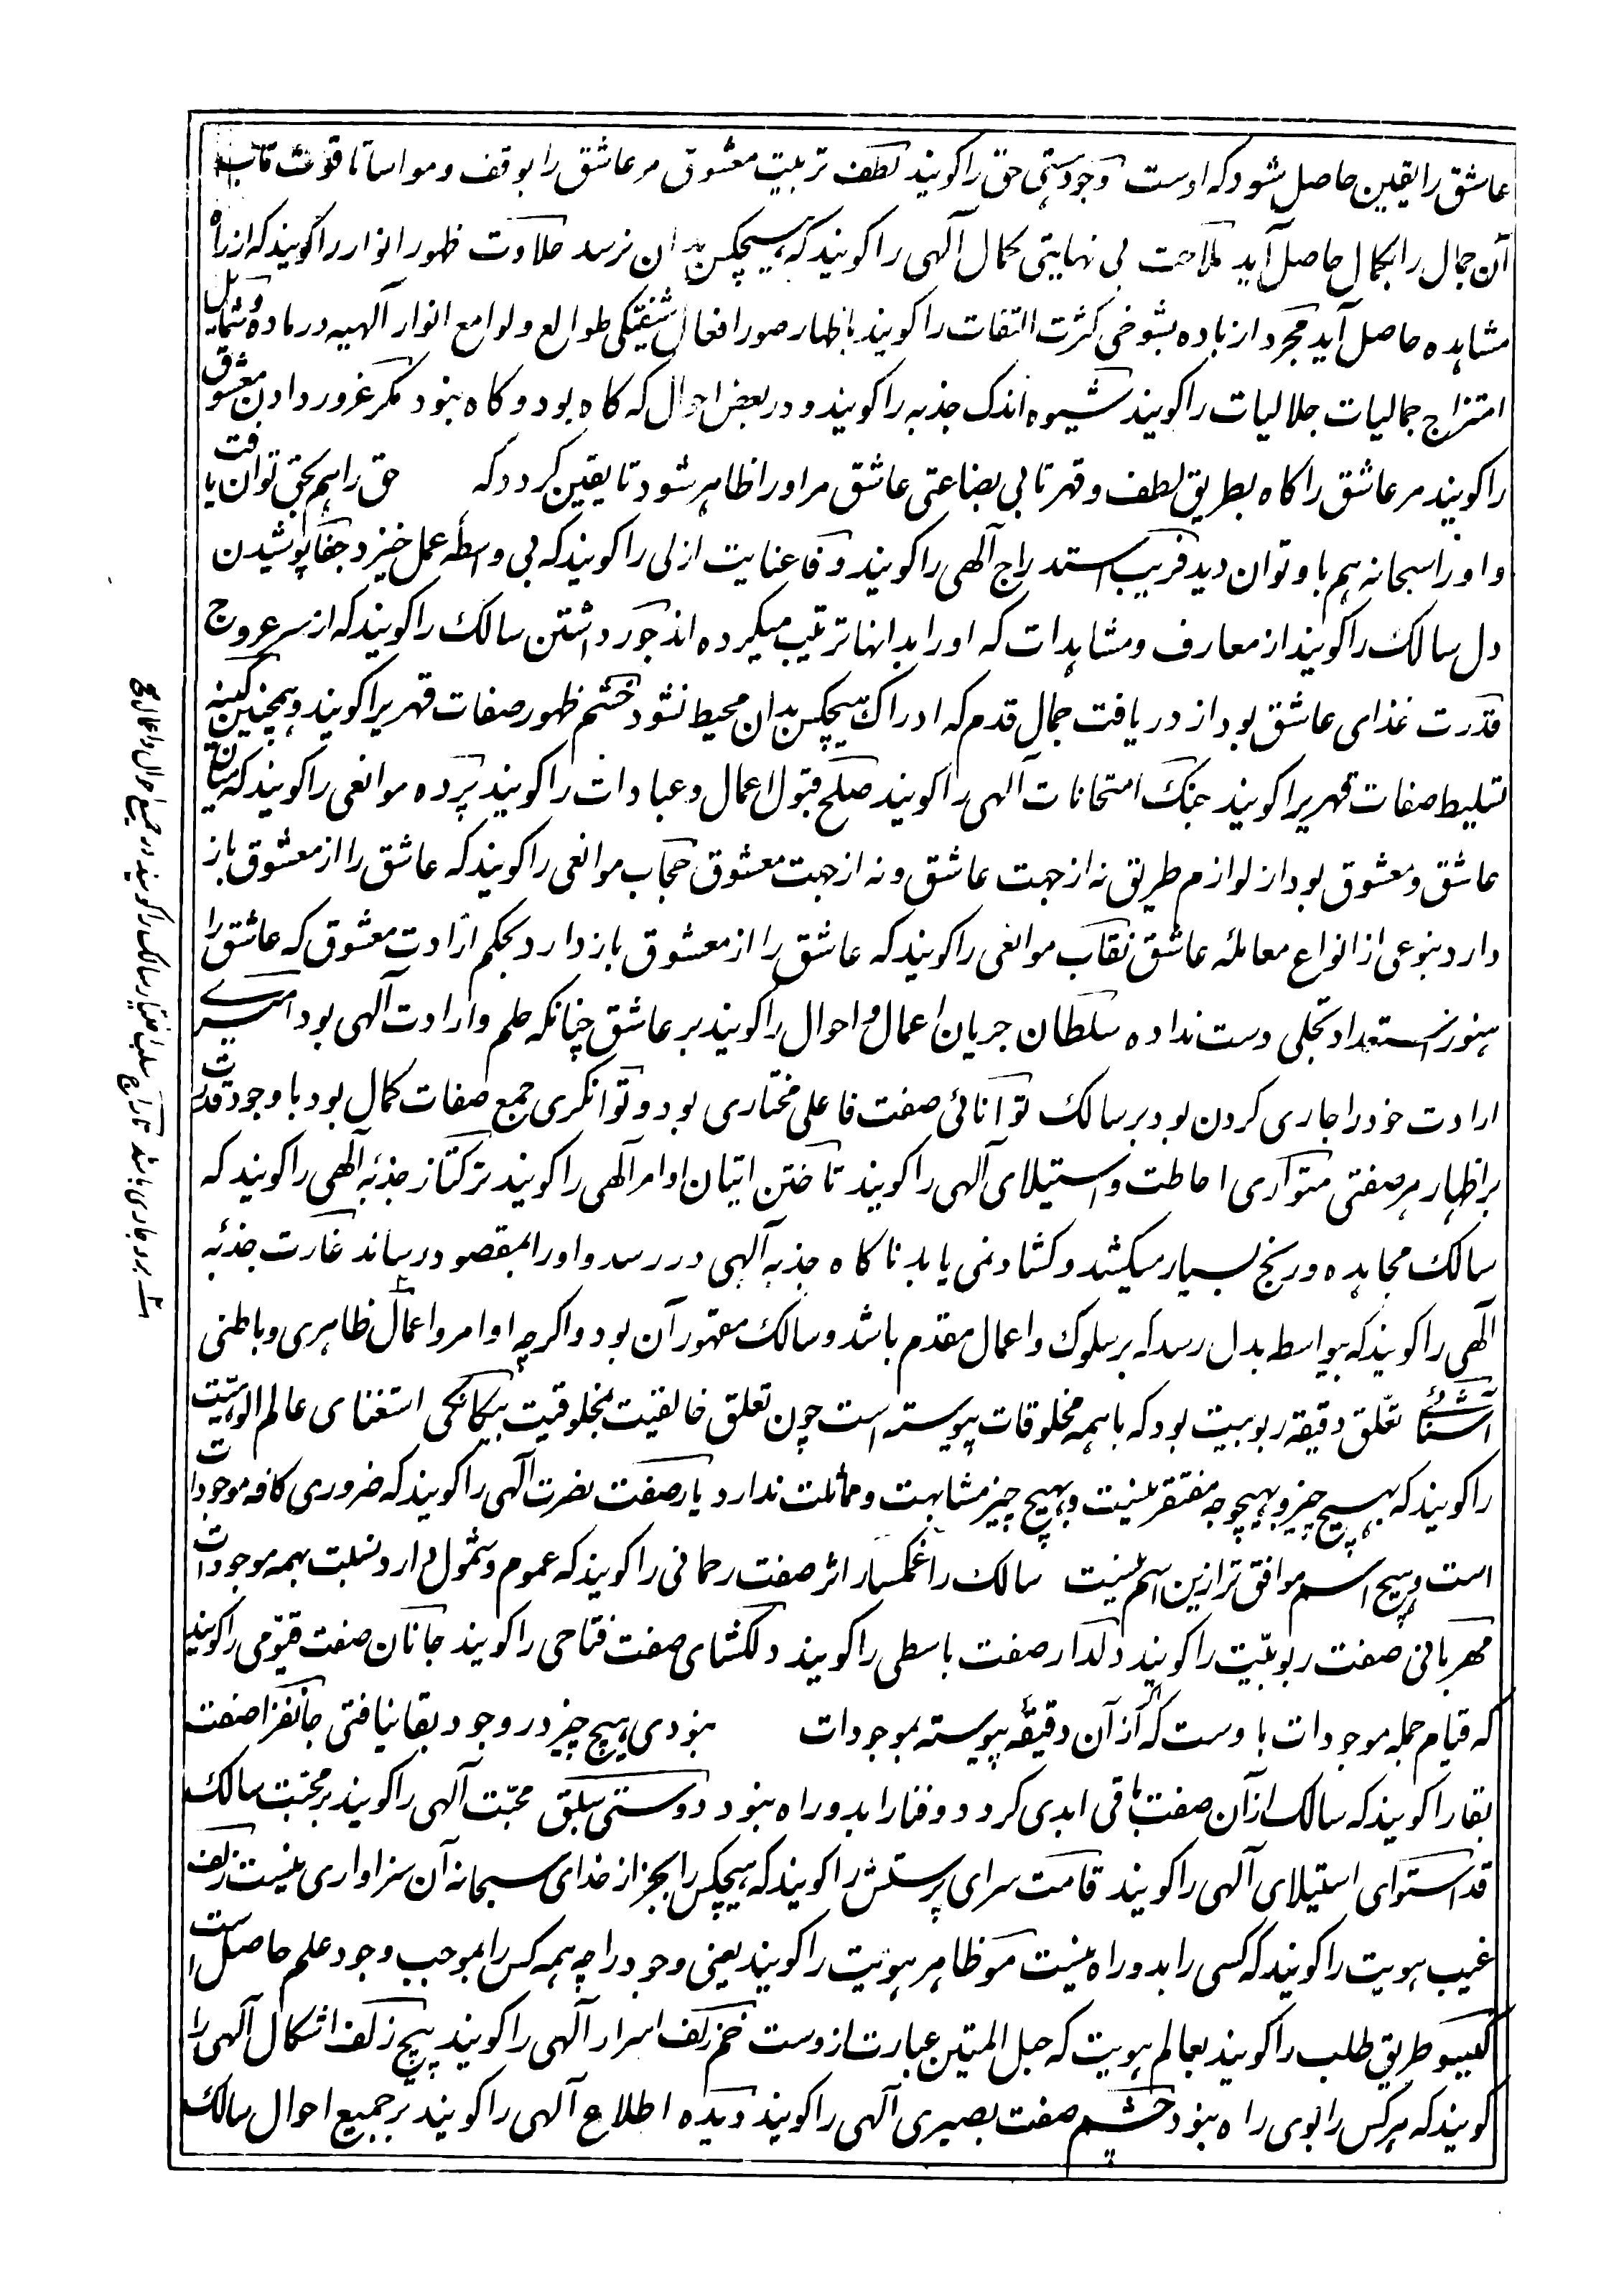 عاشق را یقین حاصل شود که اوست وجود هستی حق را کویند لطف تربیت معشوق مر عاشق را بوقف و مواسا تا قوت تاب
آن جمال را بکمال حاصل آید ملاحت بی نهایتی کمال آلهی را کویند که هیچکس بدان نرسد حلاوت ظهور انوار را کویند که از راه
مشاهده حاصل آید مجرد از باده شوخی کثرت التفات را کویند باظهار صور افعال شیفتگی طوالع و لوامع انوار آلهیه در ماده و شمایل
امتزاج جمالیات جلالیات را کویند شیوه اندک جذبه را کویند و در بعض احوال که کاه بود و کاه نبود مکر غرور دادن معشوق
را کویند مر عاشق را کاه بطریق لطف و قهر تا بی بضاعتی عاشق مر او را ظاهر شود تا یقین کردد که حق را هم بحق توان یافت
و او را سبحانه هم باو توان دید فریب استدراج آلهی را کویند وفا عنایت ازلی را کویند که بی واسطه عمل خیزد جفا پوشیدن
دل سالک را کویند از معارف و مشاهدات که او را بدانها ترتیب میکرده اند جور داشتن سالک را کویند که از سر عروج
قدرت غذای عاشق بود از دریافت جمال قدم که ادراک هیچکس بدان محیط نشود خشم ظهور صفات قهر یرا کویند و همچنین کینه
تسلیط صفات قهر یرا کویند جنک امتحانات آلهی را کویند صلح قبول اعمال و عبادات را کویند پرده موانعی را کویند که میان
عاشق و معشوق بود از لوازم طریق نه از جهت عاشق و نه از جهت معشوق حجاب موانعی را کویند که عاشق را از معشوق باز
دارد بنوعی از انواع معامله عاشق نقاب موانعی را کویند که عاشق را از معشوق باز دارد بحکم ارادت معشوق که عاشق را
هنوز استعداد تجلی دست نداده سلطان جریان اعمال و احوال را کویند بر عاشق چنانکه علم و ارادت آلهی بود امیری
ارادت خود را جاری کردن بود بر سالک توانائی صفت فاعلی مختاری بود و توانکری جمع صفات کمال بود با وجود قدرت
بر اظهار هر صفتی متواری احاطت و استیلای آلهی را کویند تاختن اتیان اوامر آلهی را کویند ترکتاز جذبه آلهی را کویند که
سالک مجاهده و رنج بسیار میکشد و کشاد نمی یابد ناکاه جذبه آلهی در رسد و او را بمقصود رساند غارت جذبه
آلهی را کویند که بیواسطه بدل رسد که بر سلوک و اعمال مقدم باشد و سالک مقهور آن بود و اکرچه اوامر و اعمال ظاهری و باطنی
آشنائی تعلق دقیقه ربوبیت بود که با همه مخلوقات پیوسته است چون تعلق خالقیت بمخلوقیت بیکانکی استغنای عالم الوهیت
را کویند که بهیچ چیز و بهیچوجه مفتقر نیست و بهیچ چیز مشابهت و مماثلت ندارد یار صفت نصرت آلهی را کویند که ضروری کافه موجودات
است و هیچ اسم موافق تر ازین اسم نیست سالک را غمکسار اثر صفت رحمانی را کویند که عموم و شمول دارد نسبت بهمه موجودات
مهربانی صفت ربوبیت را کویند دلدار صفت باسطی را کویند دلکشای صفت فتاحی را کویند جانان صفت قیومی را کویند
که قیام جمله موجودات باوست که از آن دقیقه پیوسته بموجودات نبودی هیچ چیز در وجود بقا نیافتی جانفزا صفت
بقا را کویند که سالک از آن صفت باقی ابدی کردد و فنا را بدو راه نبود دوستی سبق محبت آلهی را کویند بر محبت سالک
قد استوای استیلای آلهی را کویند قامت سرای پرستش را کویند که هیچکس را بجز از خدای سبحانه آن سزاواری نیست زلف
غیب هویت را کویند که کسی را بدو راه نیست مو ظاهر هویت را کویند یعنی وجود را چه همه کس را بموجب وجود علم حاصل است
کیسو طریق طلب را کویند بعالم هویت که حبل المتین عبارت ازوست خم زلف اسرار آلهی را کویند پیچ زلف اشکال آلهی را
کویند که هر کس را بوی راه نبود چشم صفت بصیری آلهی را کویند دیده اطلاع آلهی را کویند بر جمیع احوال سالک
برو جاری باشد تاراج سلب اختیار سالک را کویند در جمیع احوال و اعمال